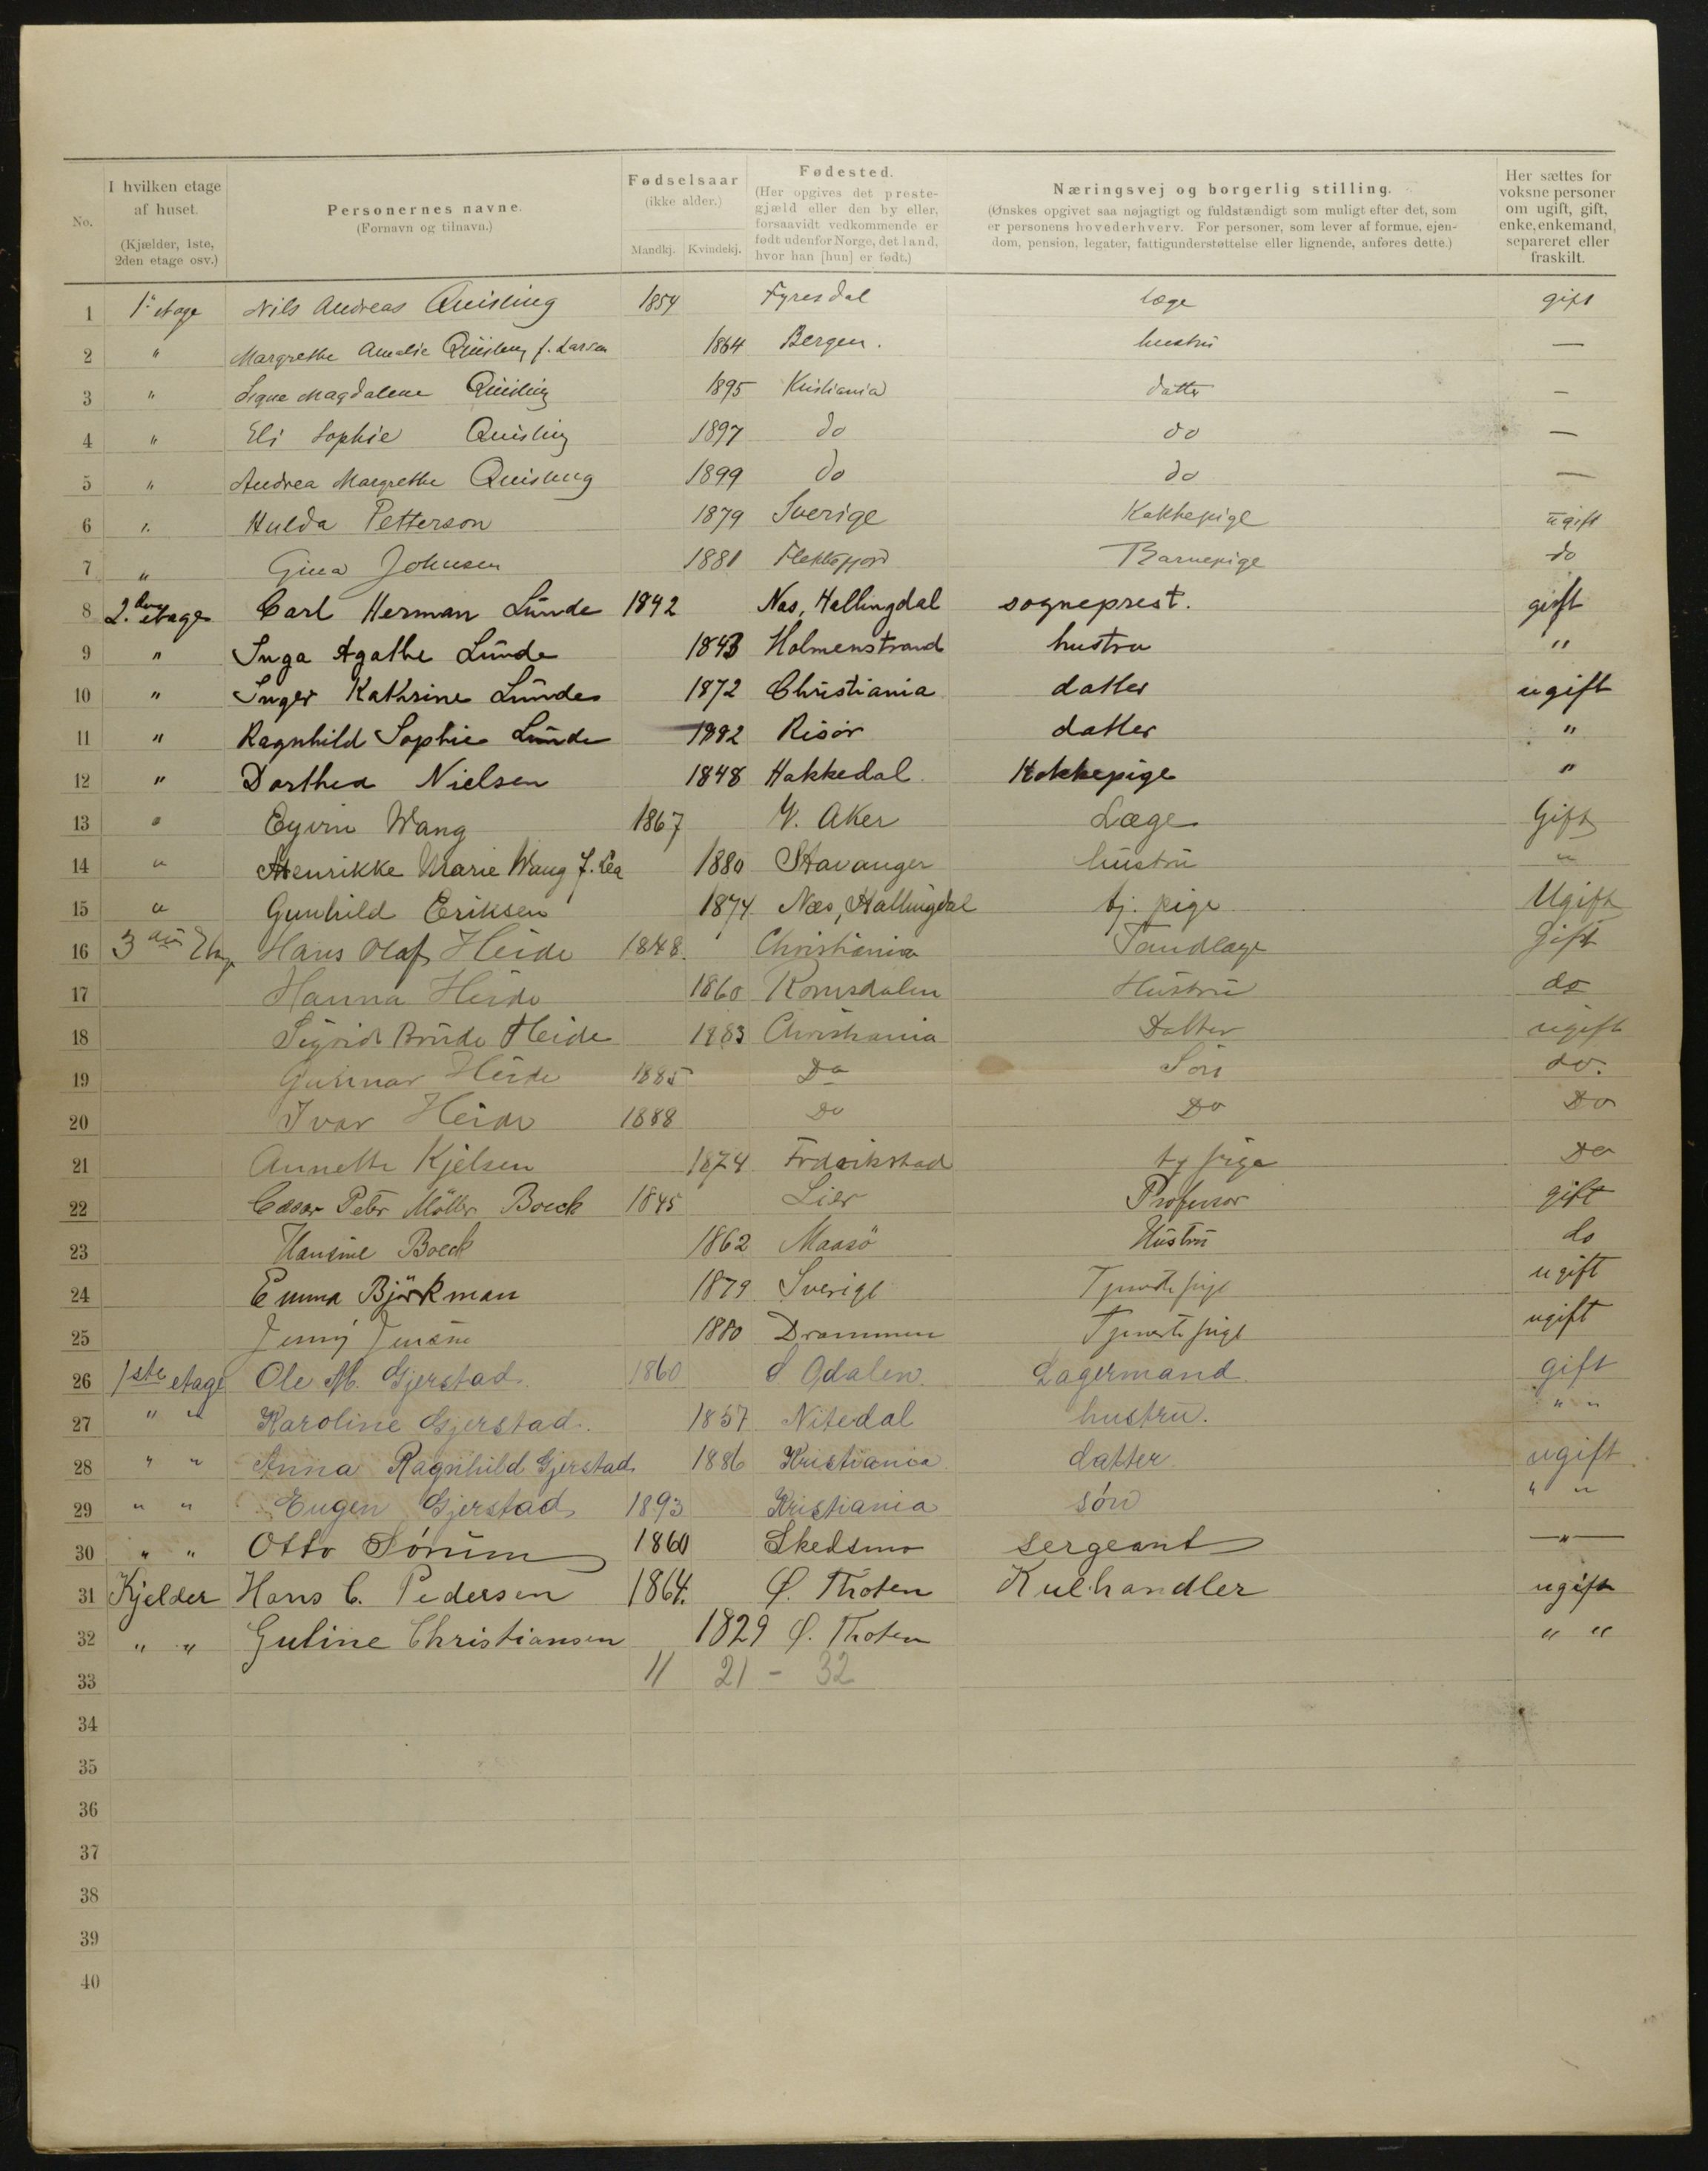 No.
I hvilken etage af huset. (Kjælder, 1ste, 2den etage osv.)
Personernes navne. (Fornavn og tilnavn.)
Fødselsaar (ikke alder.) Mandkj. Kvindekj.
Fødested. (Her opgives det prestegjæld eller den by eller, forsaavidt vedkommende er født udenfor Norge, det land, hvor han [hun] er født.)
Næringsvej og borgerlig stilling. (Ønskes opgivet saa nøjagtigt og fuldstændigt som muligt efter det, som er personens hovederhverv. For personer, som lever af formue, ejendom, pension, legater, fattigunderstøttelse eller lignende, anføres dette.)
Her sættes for voksne personer om ugift, gift, enke, enkemand, separeret eller fraskilt.
1 1ste etage Nils Andreas Quisling 1854 Fyresdal læge gift
2 " Margrethe Amalie Quisling f. Larsen 1864 Bergen. hustru —
3 " Signe Magdalene Quisling 1895 Kristiania datter —
4 " Eli Sophie Quisling 1897 do do —
5 " Andrea Margrethe Quisling 1899 do do —
6 " Hulda Petterson 1879 Sverige Kokkepige ugift
7 " Gina Johnsen 1881 Flekkefjord Barnepige do
8 2. den etage Carl Herman Lunde 1842 Nas, Hallingdal sogneprest. gift
9 " Inga Agathe Lunde 1843 Holmenstrand hustru "
10 " Inger Kathrine Lunde 1872 Christiania datter ugift
11 " Ragnhild Sophie Lunde 1882 Risör datter "
12 " Dorthea Nielsen 1848 Hakkedal Kokkepige "
13 " Eyvin Wang 1867 V. Aker Læge Gift
14 " Henrikke Marie Wang f. Lea 1880 Stavanger hustru "
15 " Gunhild Eriksen 1874 Næs, Hallingdal tj. pige Ugift
16 3die Etage Hans Olaf Heide 1848. Christiania Tandlæge Gift
17 Hanna Heide 1860 Romsdalen Hustru do
18 Sigrid Heide 1883 Christiania Datter ugift
19 Gunnar Heide 1885 Do Sön do.
20 Ivar Heide 1888 Do Do Do
21 Annette Kjelsen 1874 Fredrikstad tj pige Do
22 Cæsar Peter Möller Boeck 1845 Lier Professor gift
23 Hansine Boeck 1862 Maasö Hustru do
24 Emma Björkman 1879 Sverige Tjenestepige ugift
25 Jenny Jensen 1880 Drammen Tjenestepige ugift
26 1ste etage Ole M. Gjerstad. 1860 S Odalen Lagermand gift
27 " " Karoline Gjerstad. 1857 Nitedal hustru. " "
28 " " Anna Ragnhild Gjerstad 1886 Kristiania datter ugift
29 " " Eugen Gjerstad 1893 Kristiania sön " "
30 " " Otto Sörum 1860 Skedsmo sergeant —"—
31 Kjelder Hans C. Pedersen 1864. Ø. Thoten Kulhandler ugift
32 " " Guline Christiansen 1829 Ø. Thoten " "
33 11 21 - 32
34
35
36
37
38
39
40